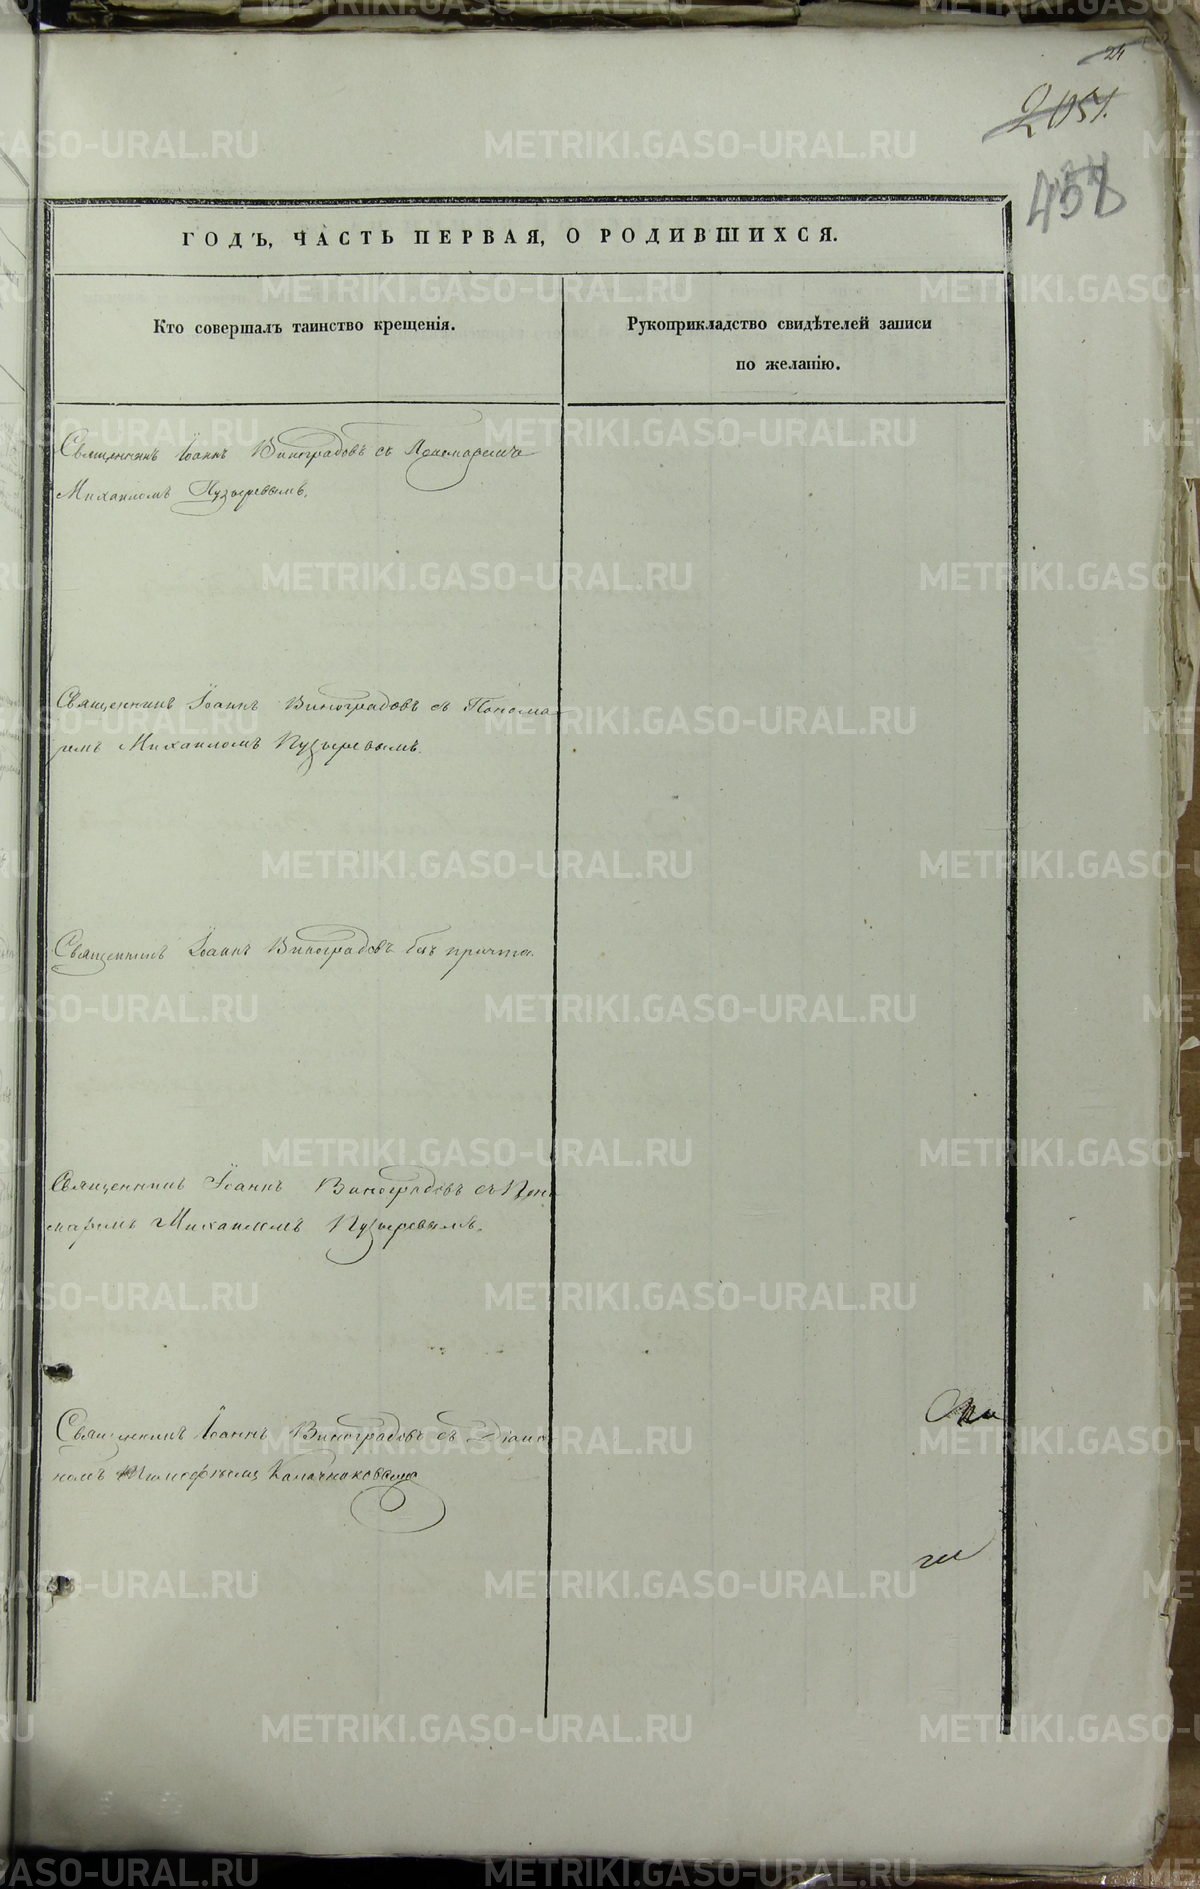 24
2051.
458
ГОДЪ, ЧАСТЬ ПЕРВАЯ, О РОДИВШИХСЯ.
Кто совершалъ таинство крещенія.
Рукоприкладство свидѣтелей записи
по желанію.
Священникъ Іоаннъ Виноградовъ съ Пономаремъ
Михаиломъ Пузыревымъ.
Священникъ Іоаннъ Виноградовъ съ Понома
ремъ Михаиломъ Пузыревымъ.
Священникъ Іоаннъ Виноградовъ безъ причта.
Священникъ Іоаннъ Виноградовъ съ Поно
маремъ Михаиломъ Пузыревымъ.
Священникъ Іоаннъ Виноградовъ съ Діако
номъ Тимофѣемъ
METRIKI.GASO-URAL.RU